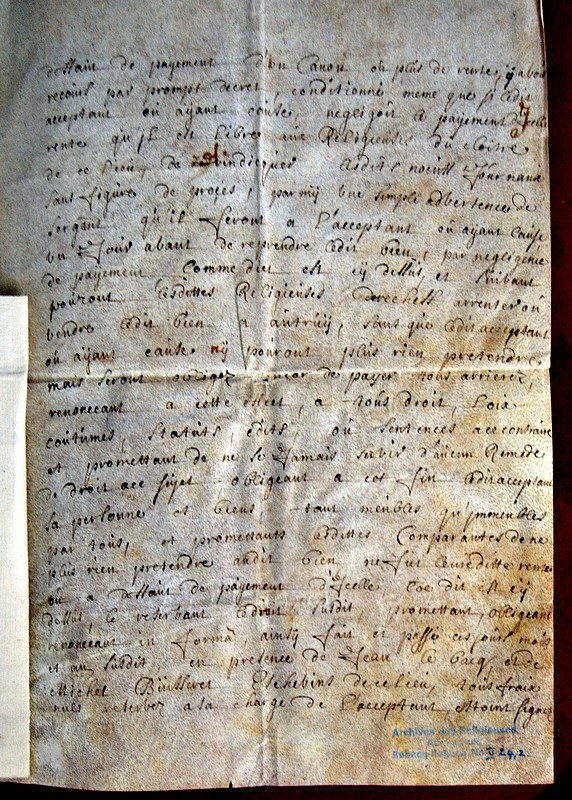 deffaut de payement d'un Canon ou plus de rente, y aboir
recours par prompt decret, conditionné meme que si ledit
acceptant ou ayant cause, negligoit a payement d'icelle
rente qu'il est libre aux Religieuses du cloitre
de ce lieu, de revindicquer lesdits noeuff Journaux
sans figure de proces, parmy une simple advertence de
sergant qu'il feront a l'acceptant ou ayant cause
un Jour avant de reprendre ledit bien, par negligence
de payement Comme dict est cy dessus, et suivant
pouront lesdittes Religieuses derecheff arrenter ou
vendre ledit bien a autruy, sans que ledit acceptant
ou ayant cause ny pouront plus rien pretendre
mais seront obligez de payer tous arrierez,
renonceant a cette effect, a tous droit, Loix
coutumes, statuts, edits, ou sentences a ce contraire
et promettant de ne se Jamais servir d'aucun Remede
de droit a ce sujet obligeant a cet fin ledit acceptant
sa personne et biens tant meubles qu'immeubles
par tous, et promettants lesdittes Comparantes de ne
plus rien pretendre audit bien ne fut laditte rente
ou a deffaut de payement d'Icelle, Coe dit est cy
dessus, se reservant ledroit susdit, promettant, obligeant
renonceant in forma, ainsy fait et passé ces jours mois
et an susdit, en presence de Jean le Bacq, et de
Michel Eschevins de ce lieu, tous fraix
nuls reservez a la charge de l'acceptant, estoint signez
Archives des Religieuses
Rebecq-Rognon No V 24, 2.